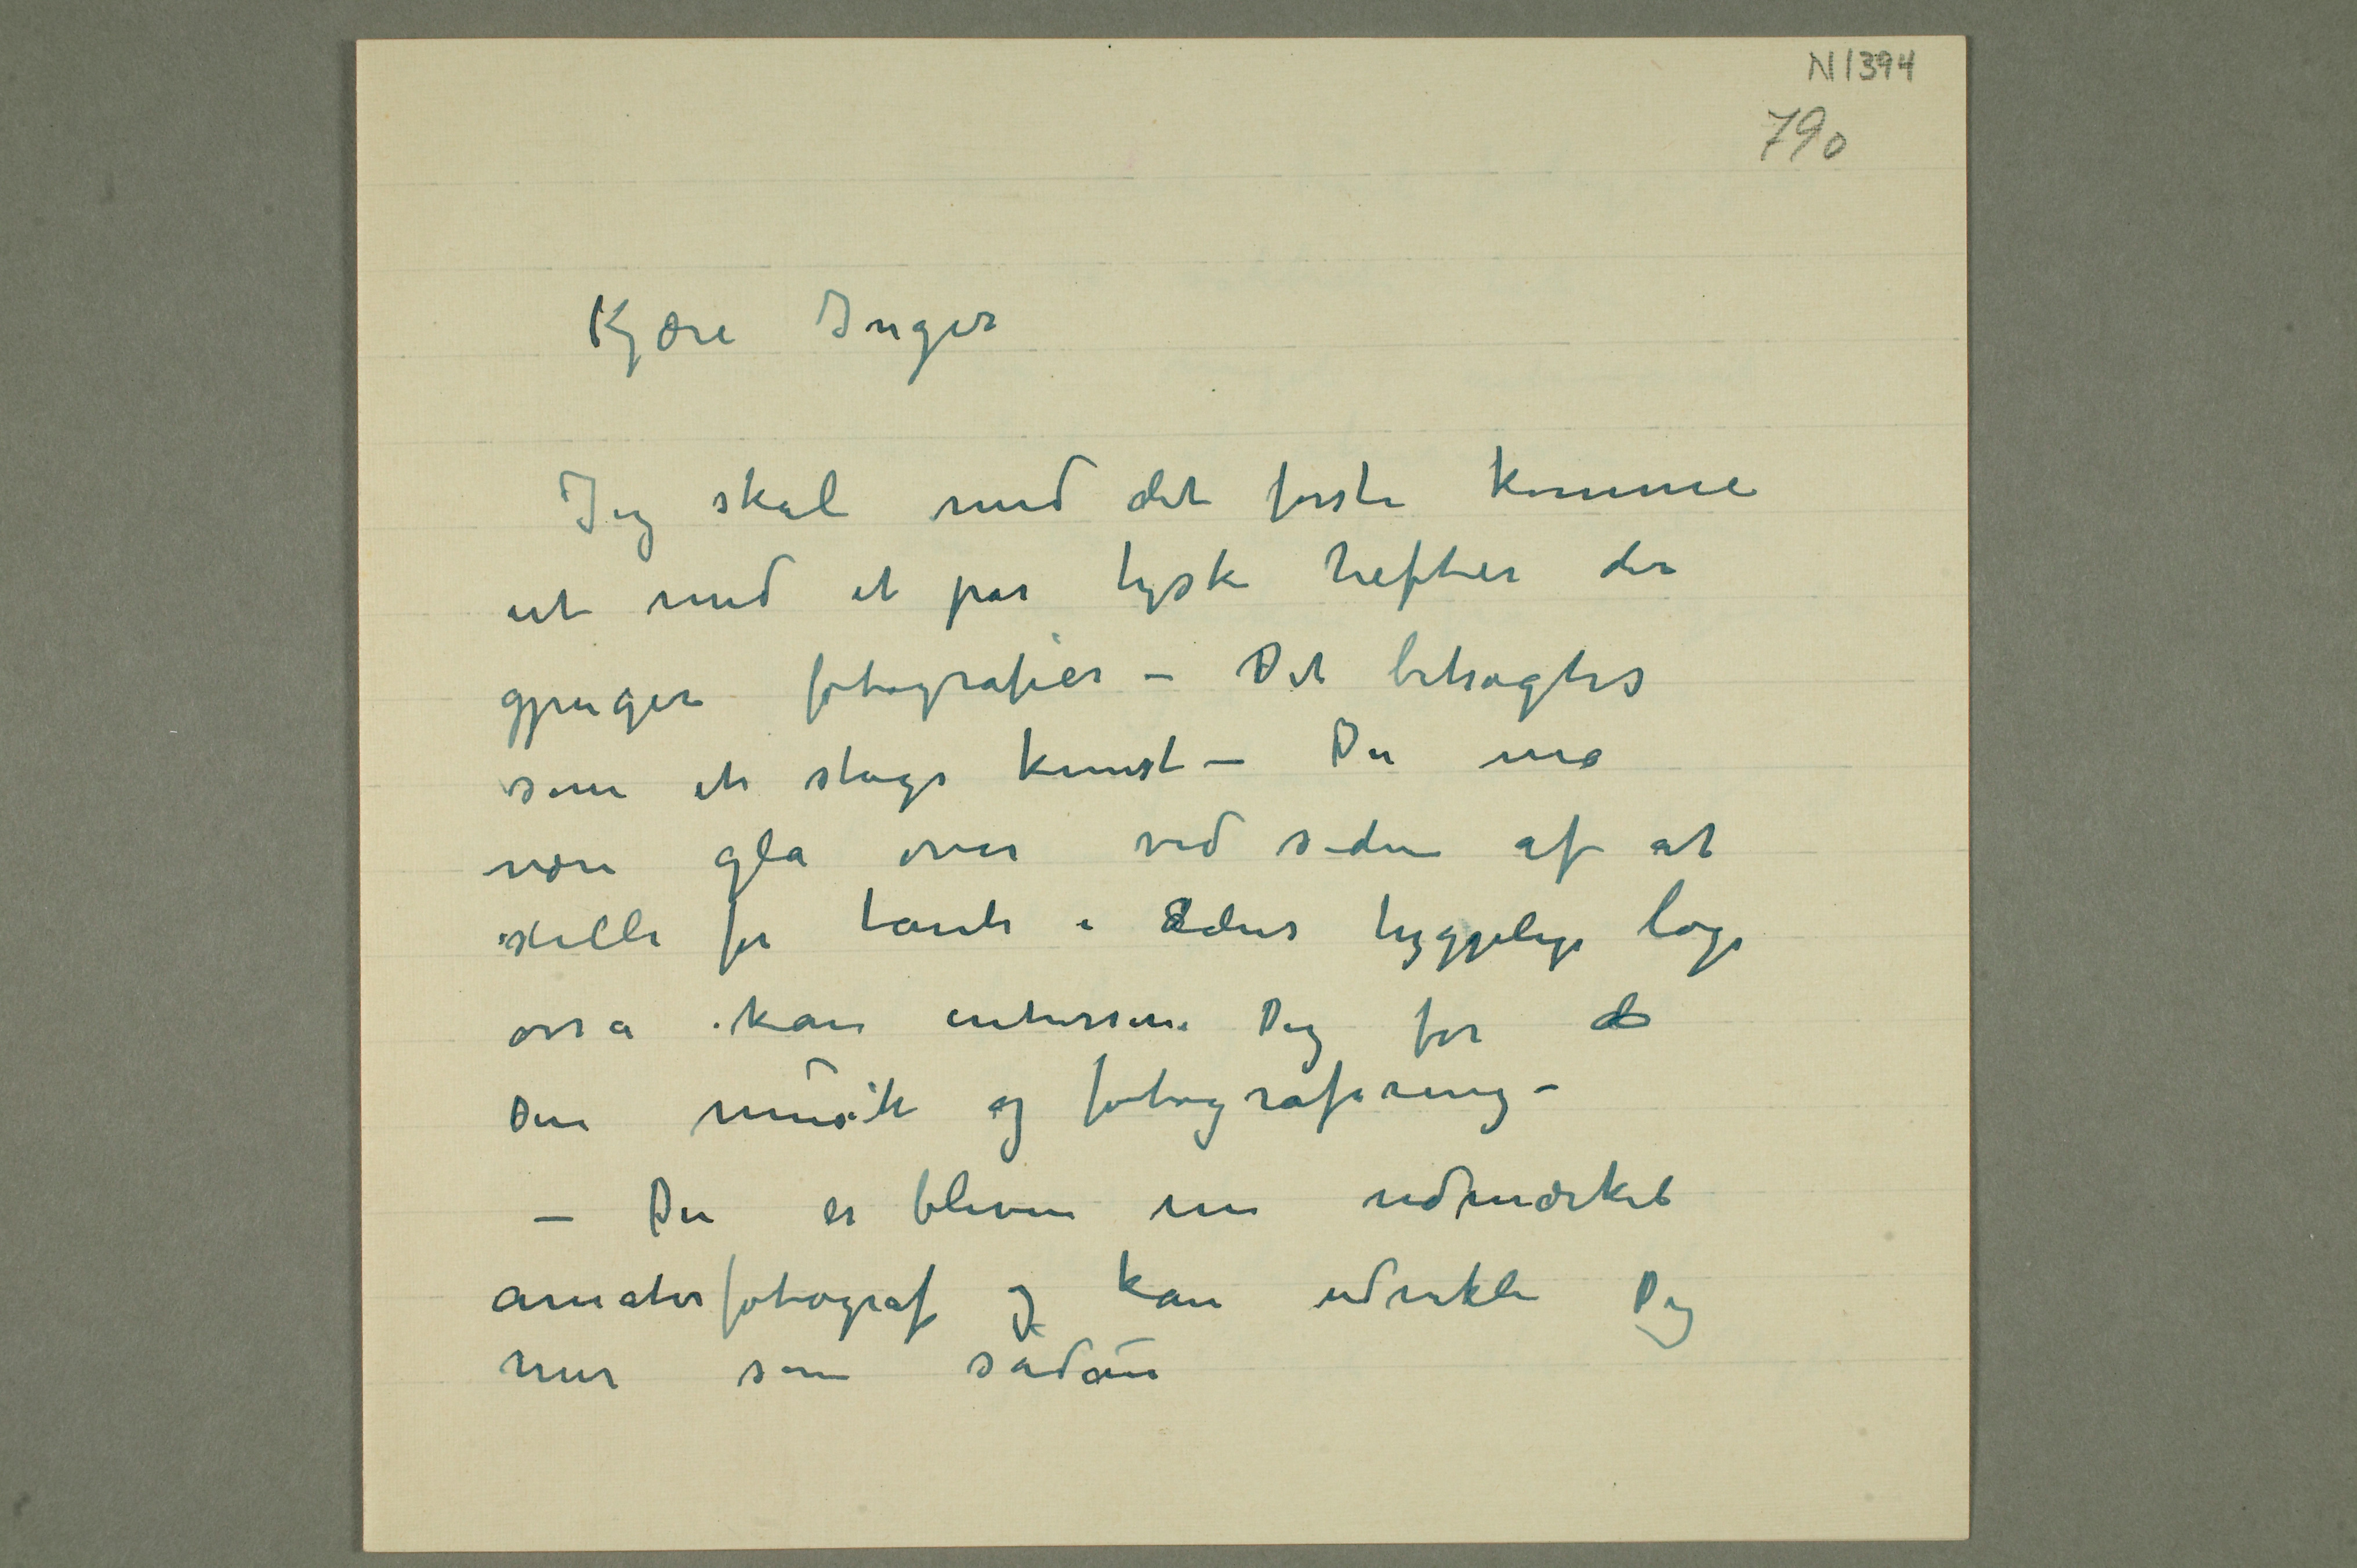 N1394
790
Kjære Inger
Jeg skal med det første komme
ut med et par tyske hefter der
gjengir fotografier – Det betragtes
som et slags kunst – Du må
være gla over ved siden af at
stelle for tante i Eders hyggelige
også kan interesere Dig for
Din musik og fotografering –
– Du er bleven en udmærket
amatørfotograf og kan udvikle Dig
mer som sådan